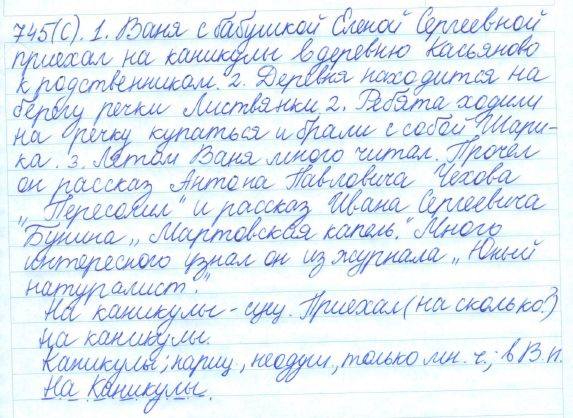 745(С). 1. Ваня с бабушкой Еленой Сергеевной
приехал на каникулы в деревню Касьяново
к родственникам. 2. Деревня находится на
берегу речки Листвянки 2. Ребята ходили
на речку купаться и брали с собой Шари-
ка. 3. Летом Ваня много читал. Прочёл
он рассказ Антона Павловича Чехова
„Пересолил" и рассказ Ивана Сергеевича
Бунина „Мартовская капель." Много
интересного узнал он из журнала „Юный
натуралист."
На каникулы - сущ. Приехал (на сколько?)
на каникулы.
Каникулы; нариц., неодуш., только мн. ч.; в В.п.
На каникулы.